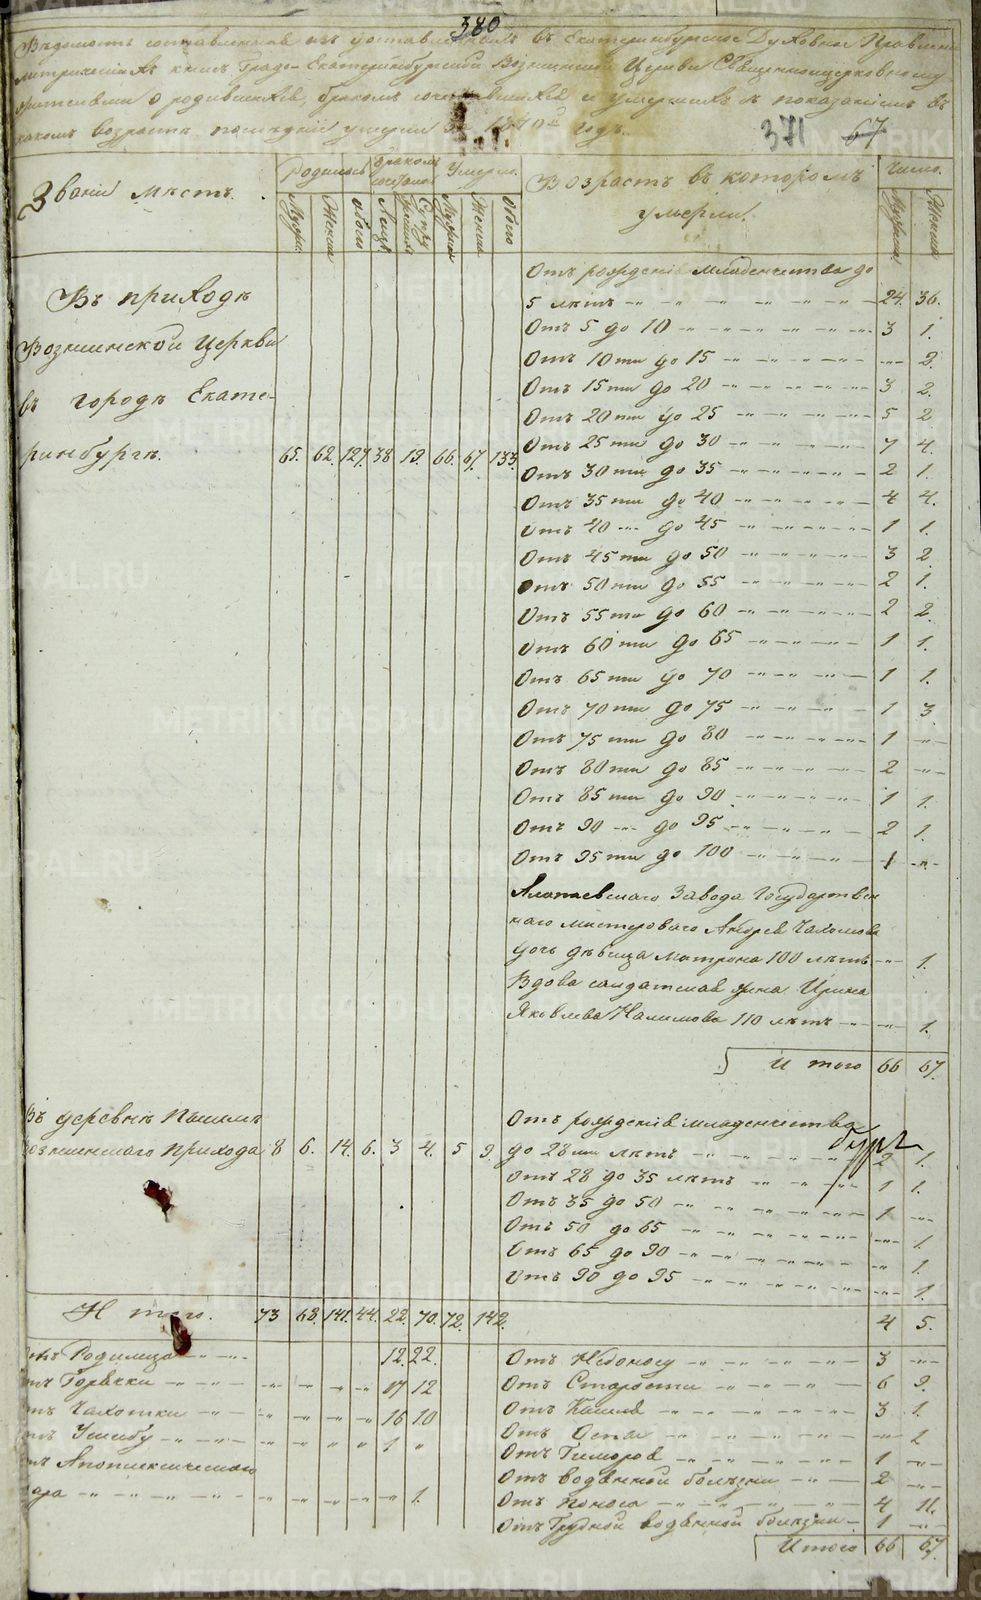 380
Вѣдомость составленная изъ доставленныхъ въ Екатеринбургское Духовное Правленіе
метрическихъ книгъ Градо-Екатеринбургской Вознесенской Церкви Священноцерковнослу
жителями о родившихся, бракомъ сочетавшихся и умершихъ съ показаніемъ въ
какомъ возрастѣ последніи умерли за годъ.
371 67
Званіи мѣстъ.
Родилось
бракомъ сочетано
Умерло.
Возрастъ въ которомъ умерли.
Число.
Мужск.
Женск.
обоего
Мужска
Женска
Обоего
Мужска
Женска
Отъ рожденія младенчества до
5 лѣтъ 24. 36.
Въ приходѣ
Вознесенской Церкви
въ городѣ Екате-
ринбургѣ. 65. 62. 127. 38 19. 66. 67. 133.
Отъ 5 до 10 3 1.
Отъ 10ти до 15 2.
Отъ 15ти до 20 3 2.
Отъ 20ти до 25 5 2
Отъ 25ти до 30 7 4.
Отъ 30ти до 35 2 1.
Отъ 35ти до 40 4 4.
Отъ 40 до 45 1 1.
Отъ 45ти до 50 3 2
Отъ 50ти до 55 2 1.
Отъ 55ти до 60 2 2.
Отъ 60ти до 65 1 1.
Отъ 65ти до 70 1 1.
Отъ 70ти до 75 1 3.
Отъ 75ти до 80 1 -"-
Отъ 80ти до 85 2 -"-
Отъ 85ти до 90 1 1.
Отъ 90 до 95 2 1.
Отъ 95ти до 100 1 -"-
Алапаевскаго Завода Государствен
наго мастероваго Андрея
дочь дѣвица Матрона 100 лѣтъ 1.
Вдова салдатская жена Ирина
Яковлева Налимова 110 лѣтъ 1.
И того 66 67.
Въ деревнѣ
Вознесенскаго прихода 8 6. 14. 6. 3 4. 5 9.
Отъ рожденія младенчества
до 28ми лѣтъ 2 1.
Отъ 28 до 35 лѣтъ 1 1.
Отъ 35 до 50 1 -"-
Отъ 50 до 65 -"- 1.
Отъ 65 до 90 -"- 1.
Отъ 90 до 95 -"- 1.
И того. 73 68. 141. 44. 22. 70. 72. 142. 4 5.
Отъ Родимца 12. 22.
Отъ Горячки 17 12
Отъ Чахотки 16 10
Отъ Ушибу 1 "
Отъ Апоплексическаго
удара 1.
Отъ 3 -"-
Отъ Старости 6 9.
Отъ Кашля 3 1.
Отъ Оспы
Отъ 1 -"-
Отъ водянной болѣзни 2 -"-
Отъ поноса 4 11.
Отъ Грудной водянной болѣзни 1 -"-
Итого 66 67.
METRIKI.GASO-URAL.RU